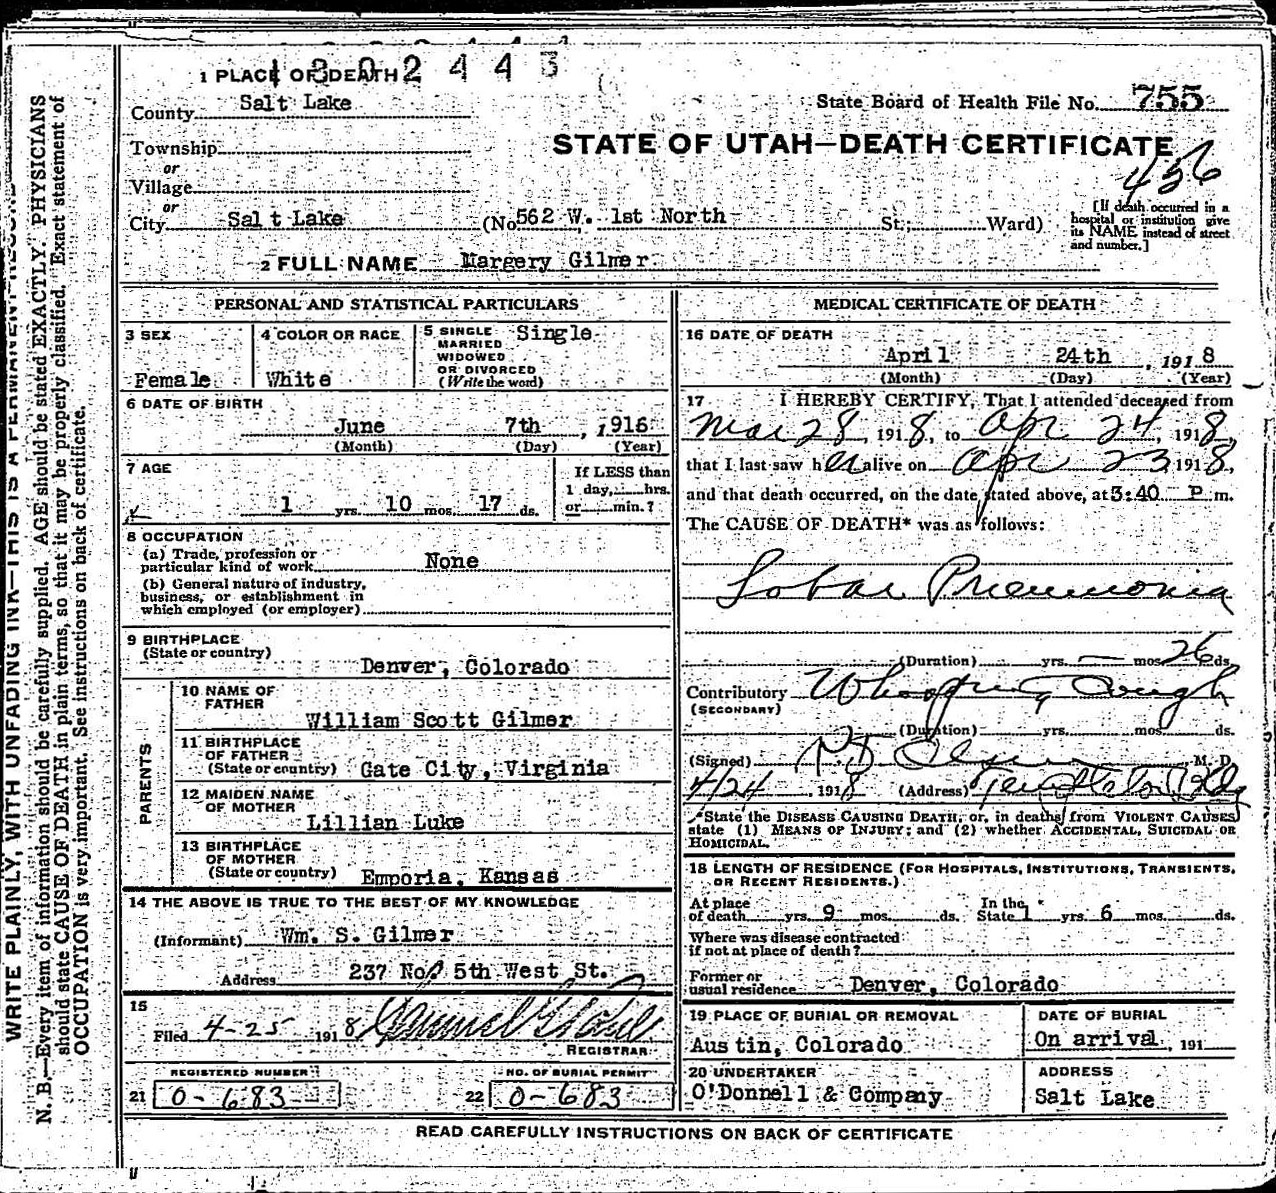 1302443
1 PLACE OF DEATH
County Salt Lake
State Board of Health File No. 755
STATE OF UTAH—DEATH CERTIFICATE
Township
or
Village
or
456
City Salt Lake (No 562 W. 1st North St; Ward)
[If death occurred in a hospital or institution give its NAME instead of street and number.]
2 FULL NAME Margery Gilmer
PERSONAL AND STATISTICAL PARTICULARS
3 SEX
Female
4 COLOR OR RACE
White
5 SINGLE
MARRIED
WIDOWED
OR DIVORCED
(Write the word)
Single
6 DATE OF BIRTH
June 7th, 1916
(Month) (Day) (Year)
7 AGE
1 yrs. 10 mos. 17 ds.
If LESS than
1 day, hrs.
or min.?
8 OCCUPATION
(a) Trade, profession or
particular kind of work None
(b) General nature of industry,
business, or establishment in
which employed (or employer)
9 BIRTHPLACE
(State or country)
Denver, Colorado
PARENTS
10 NAME OF
FATHER
William Scott Gilmer
11 BIRTHPLACE
OF FATHER
(State or country) Gate City, Virginia
12 MAIDEN NAME
OF MOTHER
Lillian Luke
13 BIRTHPLACE
OF MOTHER
(State or country) Emporia, Kansas
14 THE ABOVE IS TRUE TO THE BEST OF MY KNOWLEDGE
(Informant) Wm. S. Gilmer
Address 237 No. 5th West St.
15
Filed 4-25 1918
REGISTRAR
REGISTERED NUMBER
21 0-683
NO. OF BURIAL PERMIT
22 0-683
MEDICAL CERTIFICATE OF DEATH
16 DATE OF DEATH
April 24th, 1918
(Month) (Day) (Year)
17 I HEREBY CERTIFY, That I attended deceased from
Mar 28 1918, to Apr 24, 1918,
that I last saw her alive on Apr 23 1918,
and that death occurred, on the date stated above, at 3:40 P m.
The CAUSE OF DEATH* was as follows:
Lobar Pneumonia
(Duration) yrs. — mos 26 ds.
Contributory Whooping Cough
(SECONDARY)
(Duration) yrs. mos ds.
(Signed) M. D.
4/24 1918 (Address) Templeton Bldg
*State the DISEASE CAUSING DEATH, or, in deaths from VIOLENT CAUSES,
state (1) MEANS OF INJURY; and (2) whether ACCIDENTAL, SUICIDAL OR
HOMICIDAL.
18 LENGTH OF RESIDENCE (FOR HOSPITALS, INSTITUTIONS, TRANSIENTS,
OR RECENT RESIDENTS.)
At place
of death yrs. 9 mos. ds.
In the
State 1 yrs 6 mos. ds.
Where was disease contracted
if not at place of death?
Former or
usual residence Denver, Colorado
19 PLACE OF BURIAL OR REMOVAL
Austin, Colorado
DATE OF BURIAL
On arrival, 191
20 UNDERTAKER
O'Donnell & Company
ADDRESS
Salt Lake
READ CAREFULLY INSTRUCTIONS ON BACK OF CERTIFICATE
WRITE PLAINLY, WITH UNFADING INK—THIS IS A PERMANENT RECORD
N. B.—Every item of information should be carefully supplied. AGE should be stated EXACTLY. PHYSICIANS
should state CAUSE OF DEATH in plain terms, so that it may be properly classified. Exact statement of
OCCUPATION is very important. See instructions on back of certificate.